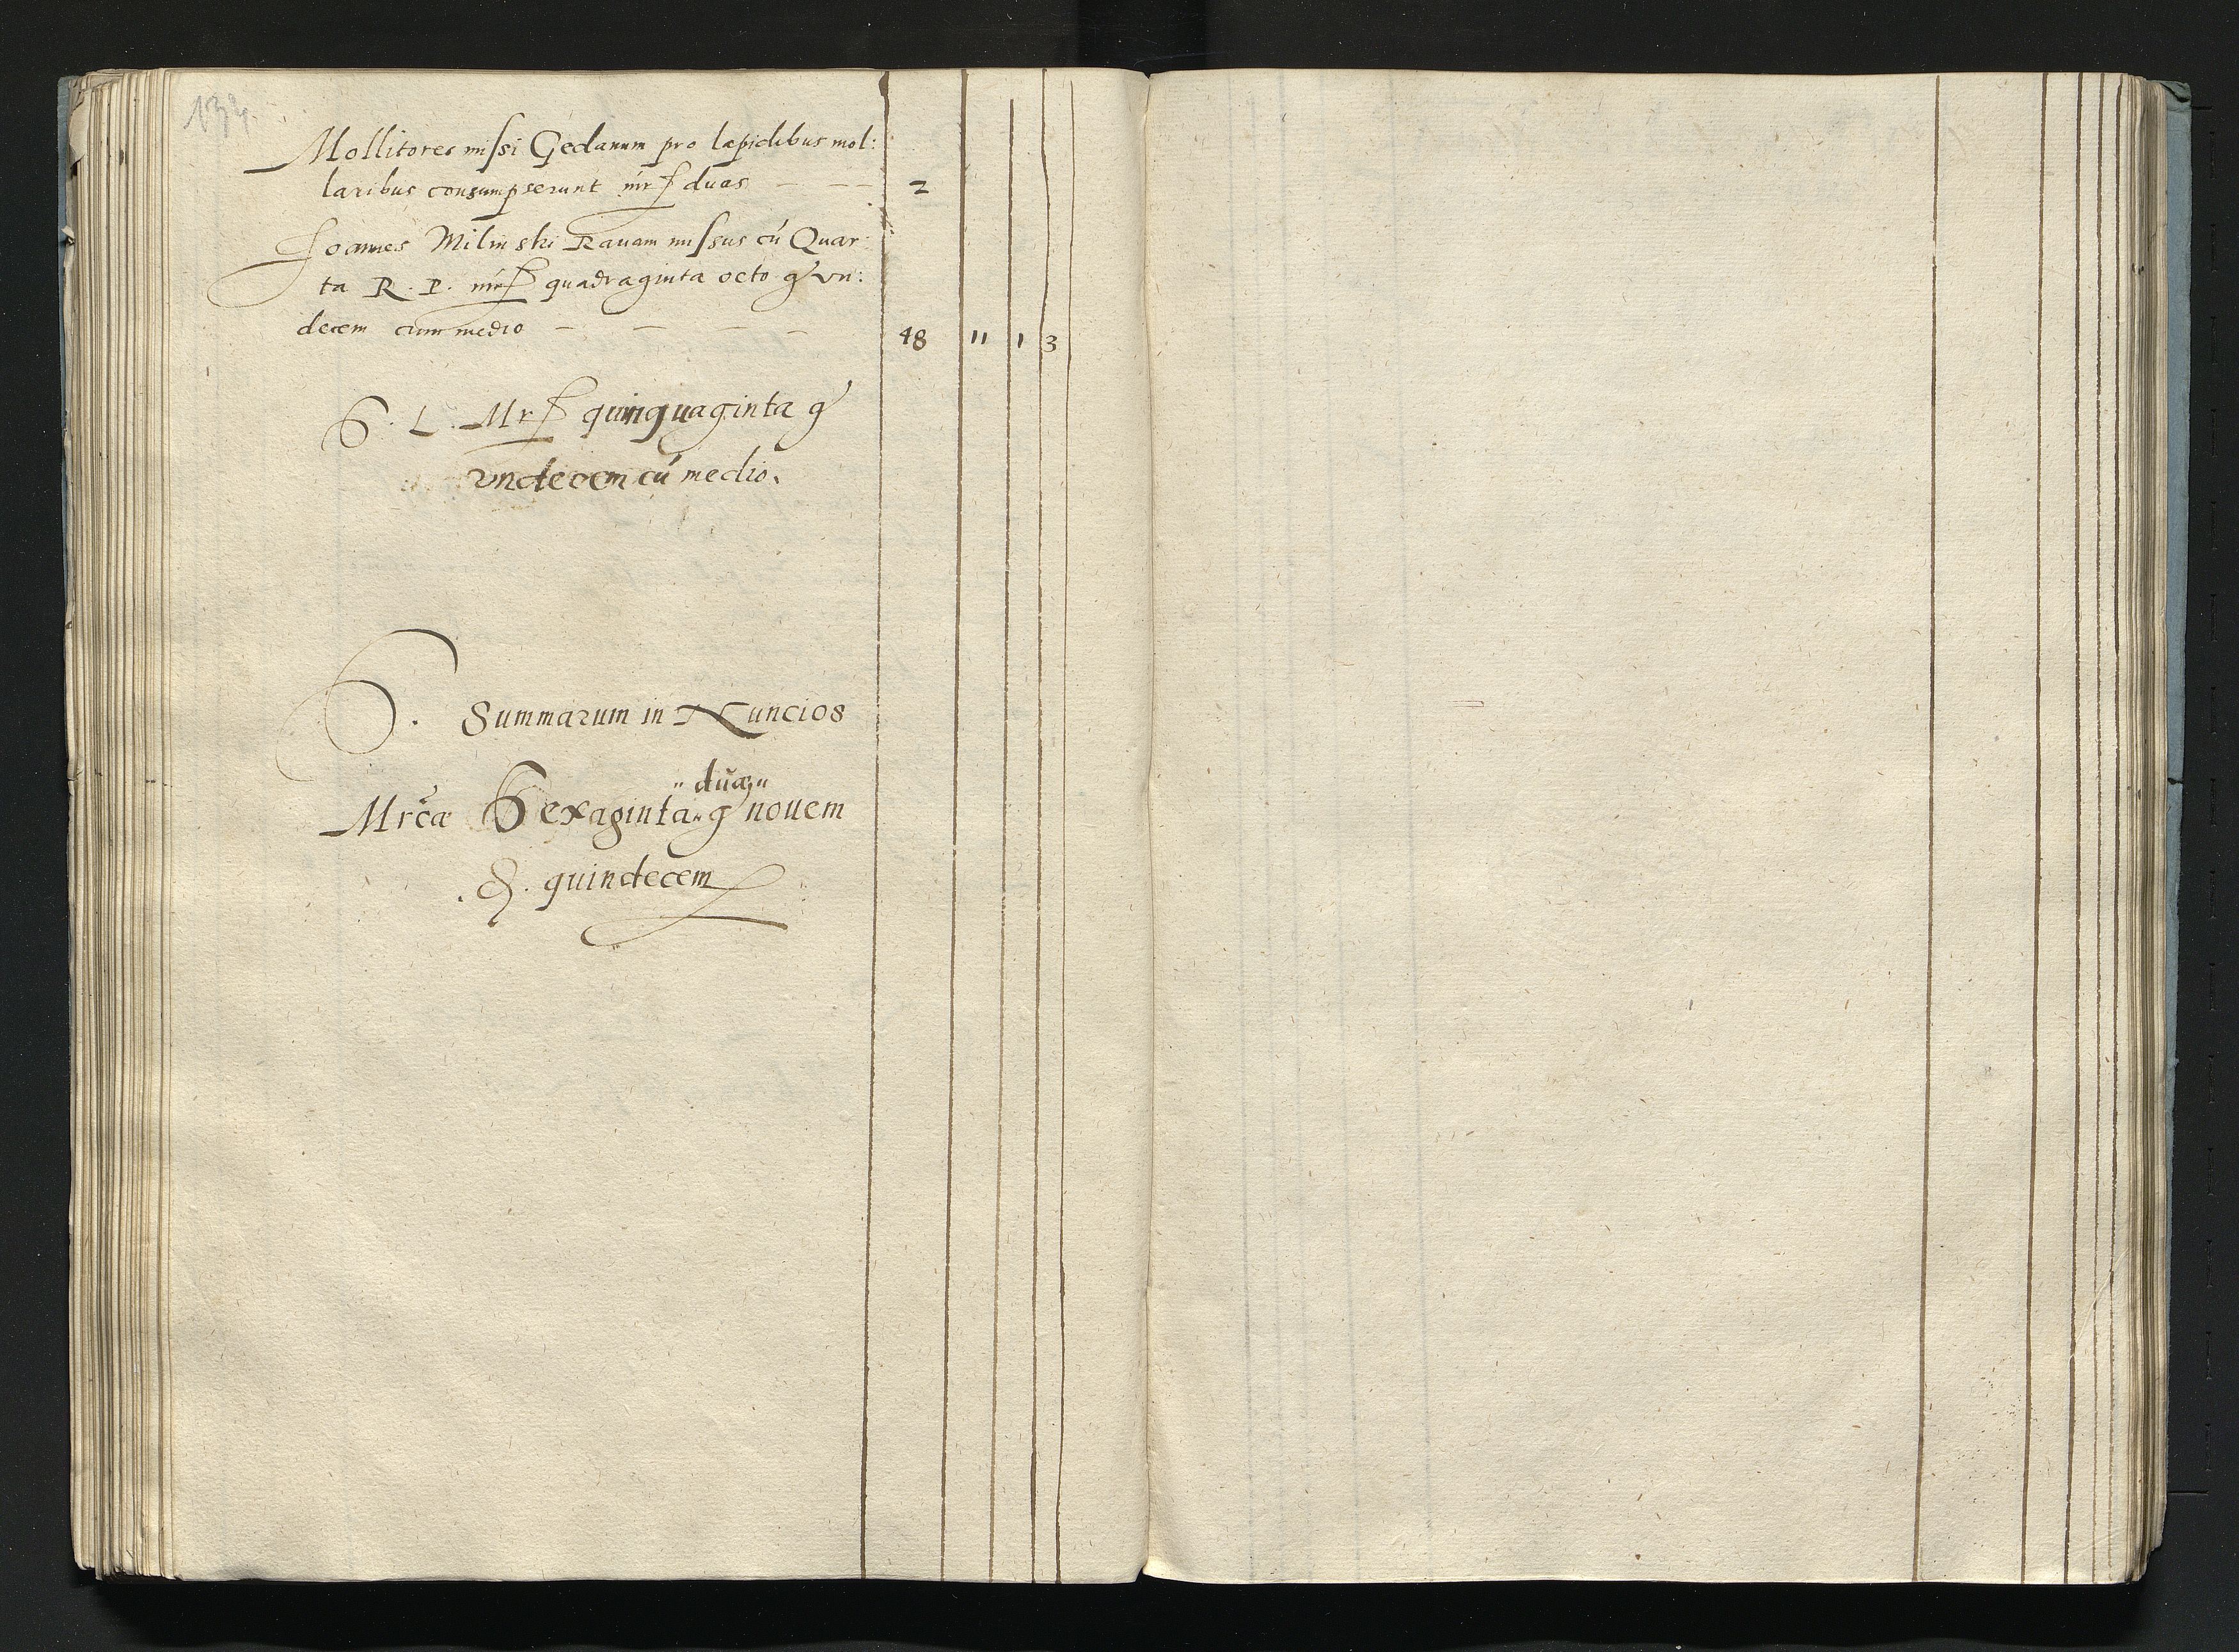 134.
Mollitores missi Gedanum pro lapidibus mol:
laribus consumpserunt mrc duas — — — 2
Joannes Milinski Ravam missus cũ Quar:
ta R. P. mrc quadraginta octo gr vn:
decem cum medio — — — — 48 11 1 3
S. L. Mrc quinquaginta gr
vndecem cũ medio.
S. Summarum in Nuncios
duæ
Mrcæ Sexaginta gr nouem
₰. quindecem